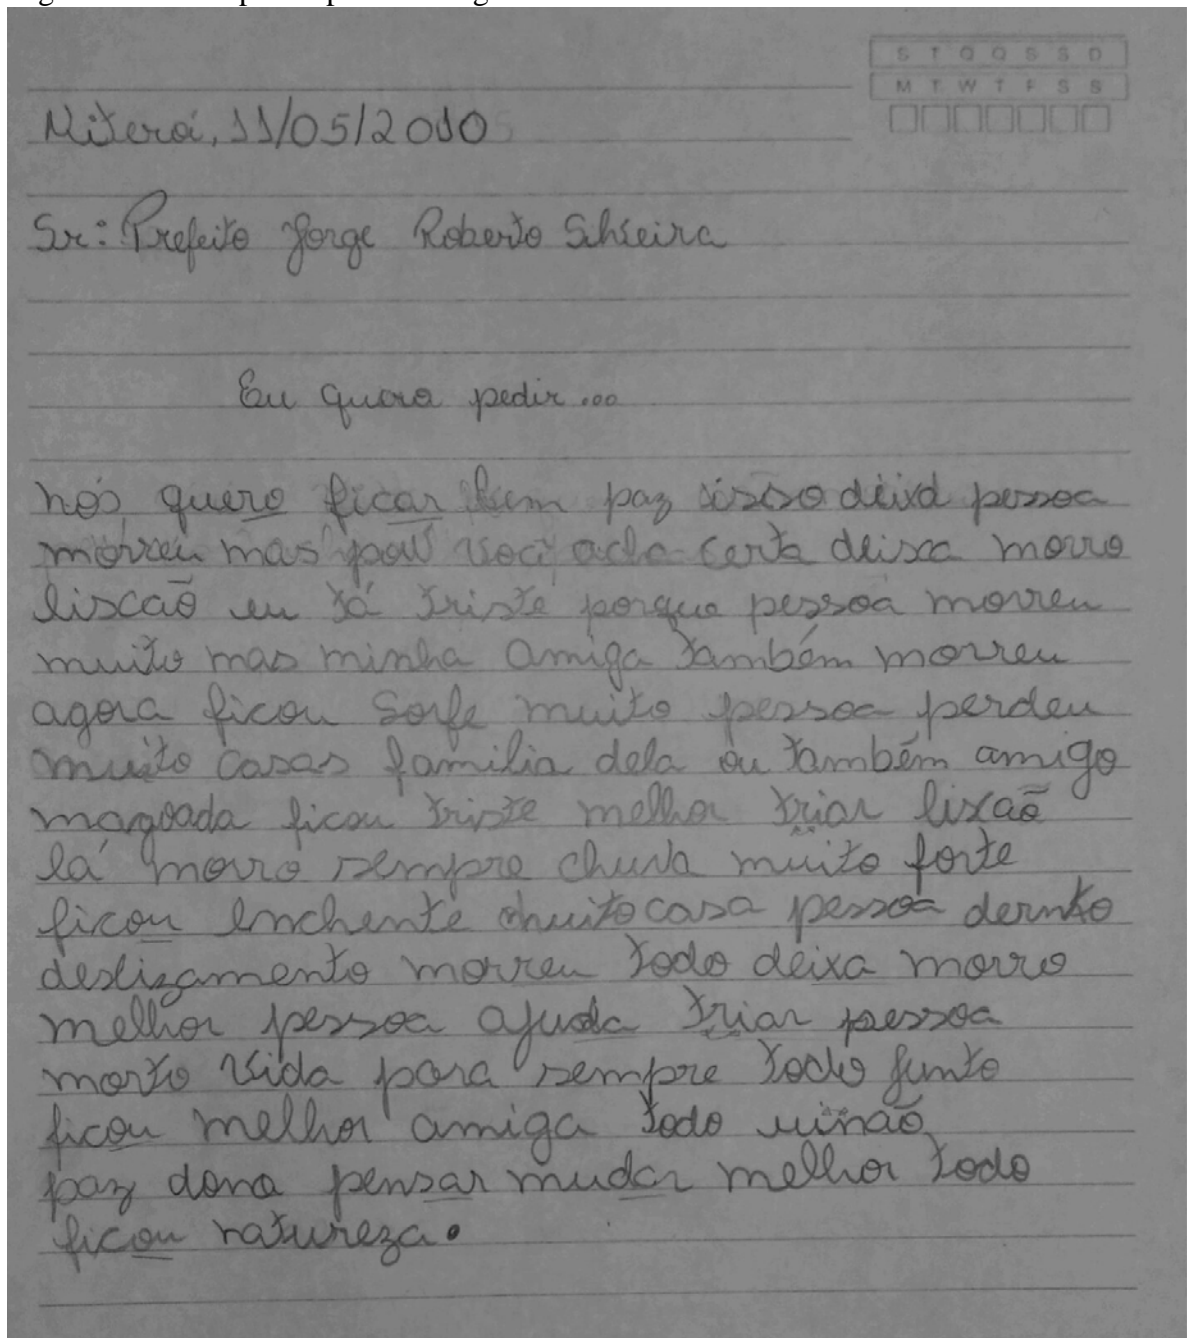 S T Q Q S S D
M T W T F S S
Niteroi, 11/05/2010
Sr: Prefeito Jorge Roberto Silveira
Eu quora pedir...
nós quero ficar bem paz isso deixa pessoa
morreu mas você acha certa deixa morro
liscaõ eu tá triste porque pessoa morreu
muito mas minha amiga também morreu
agora ficou sorfe muito pessoa perdeu
muito casas família dela ou também amigo
magoada ficou triste melhor triar lixaõ
lá morro sempre chuva muito forte
ficou enchente muito casa pessoa dernto
deslizamento morreu todo deixa morro
melhor pessoa ajuda triar pessoa
morto vida para sempre todo junto
ficou melhor amiga todo
paz dona pensar mudar melhor todo
ficou natureza.